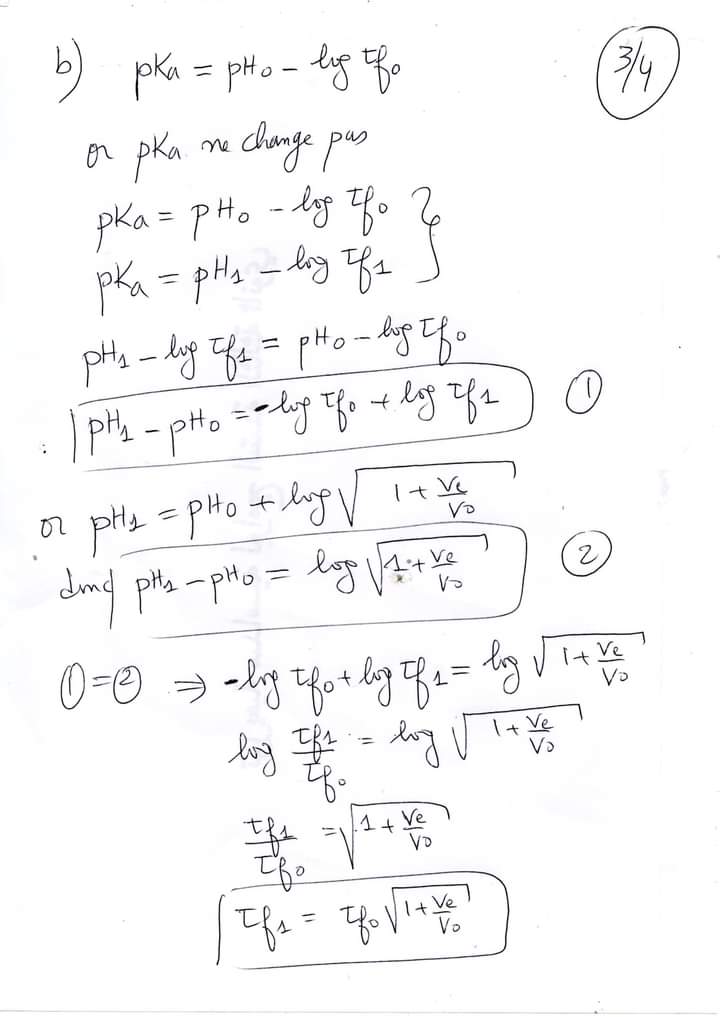 b) pKa = pH₀ - log τf₀
3/4
or pKa ne change pas
pKa = pH₀ - log τf₀ }
pKa = pH₁ - log τf₁
pH₁ - log τf₁ = pH₀ - log τf₀
pH₁ - pH₀ = -log τf₀ + log τf₁ ①
or pH₁ = pH₀ + log √(1 + Ve/V₀)
donc pH₁ - pH₀ = log √(1 + Ve/V₀) ②
① = ② ⇒ -log τf₀ + log τf₁ = log √(1 + Ve/V₀)
log τf₁/τf₀ = log √(1 + Ve/V₀)
τf₁/τf₀ = √(1 + Ve/V₀)
τf₁ = τf₀ √(1 + Ve/V₀)